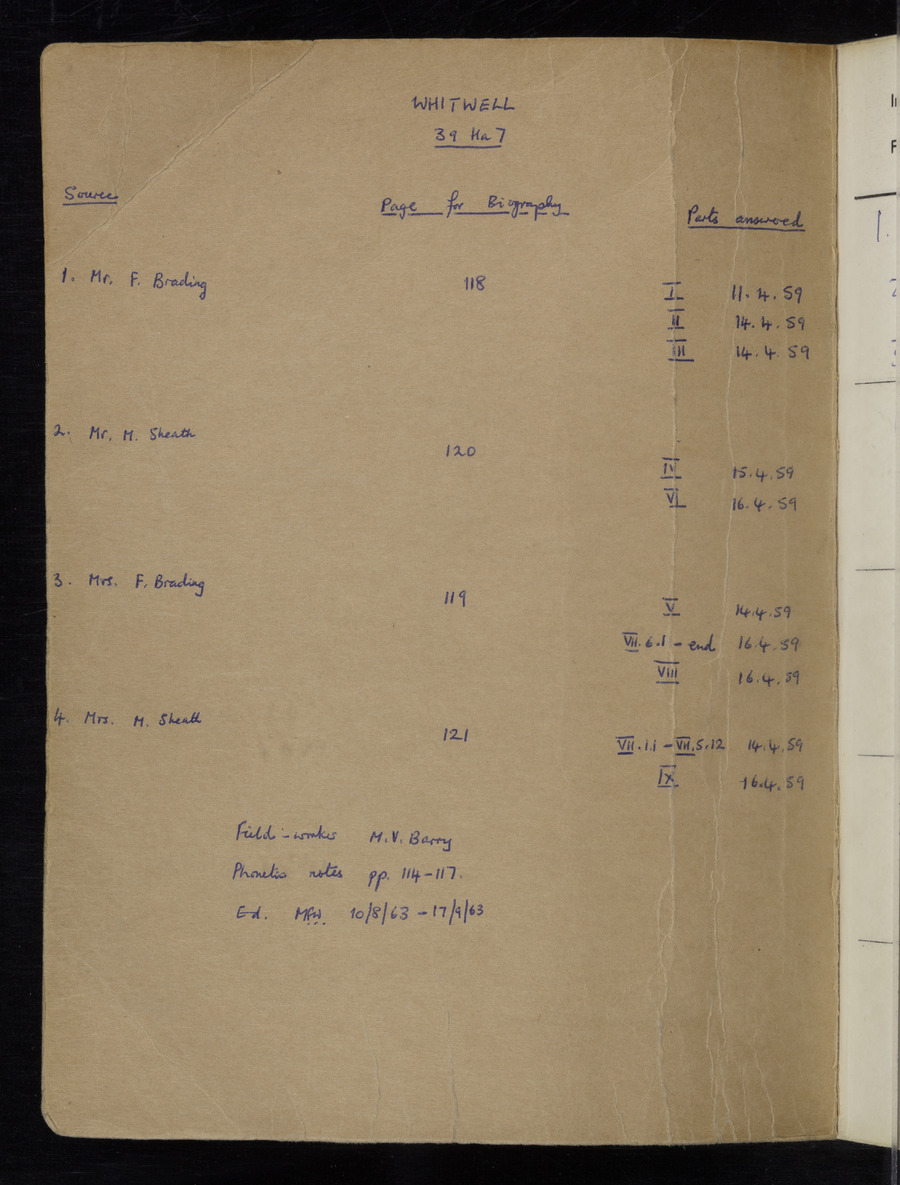 WHITWELL
39 Ha 7
Source Page for Biography Parts answered
1. Mr. F. Brading 118 I 11.4.59
II 14.4.59
III 14.4.59
2. Mr. M. Sheath 120 IV 15.4.59
VI 16.4.59
3. Mrs. F. Brading 119 V 14.4.59
VII.6.1 - end 16.4.59
VIII 16.4.59
4. Mrs. M. Sheath 121 VII.1.1 - VII.5.12 14.4.59
IX 16.4.59
Field-worker M.V. Barry
Phonetic notes pp. 114-117.
Ed. MFW 10/8/63 - 17/9/63